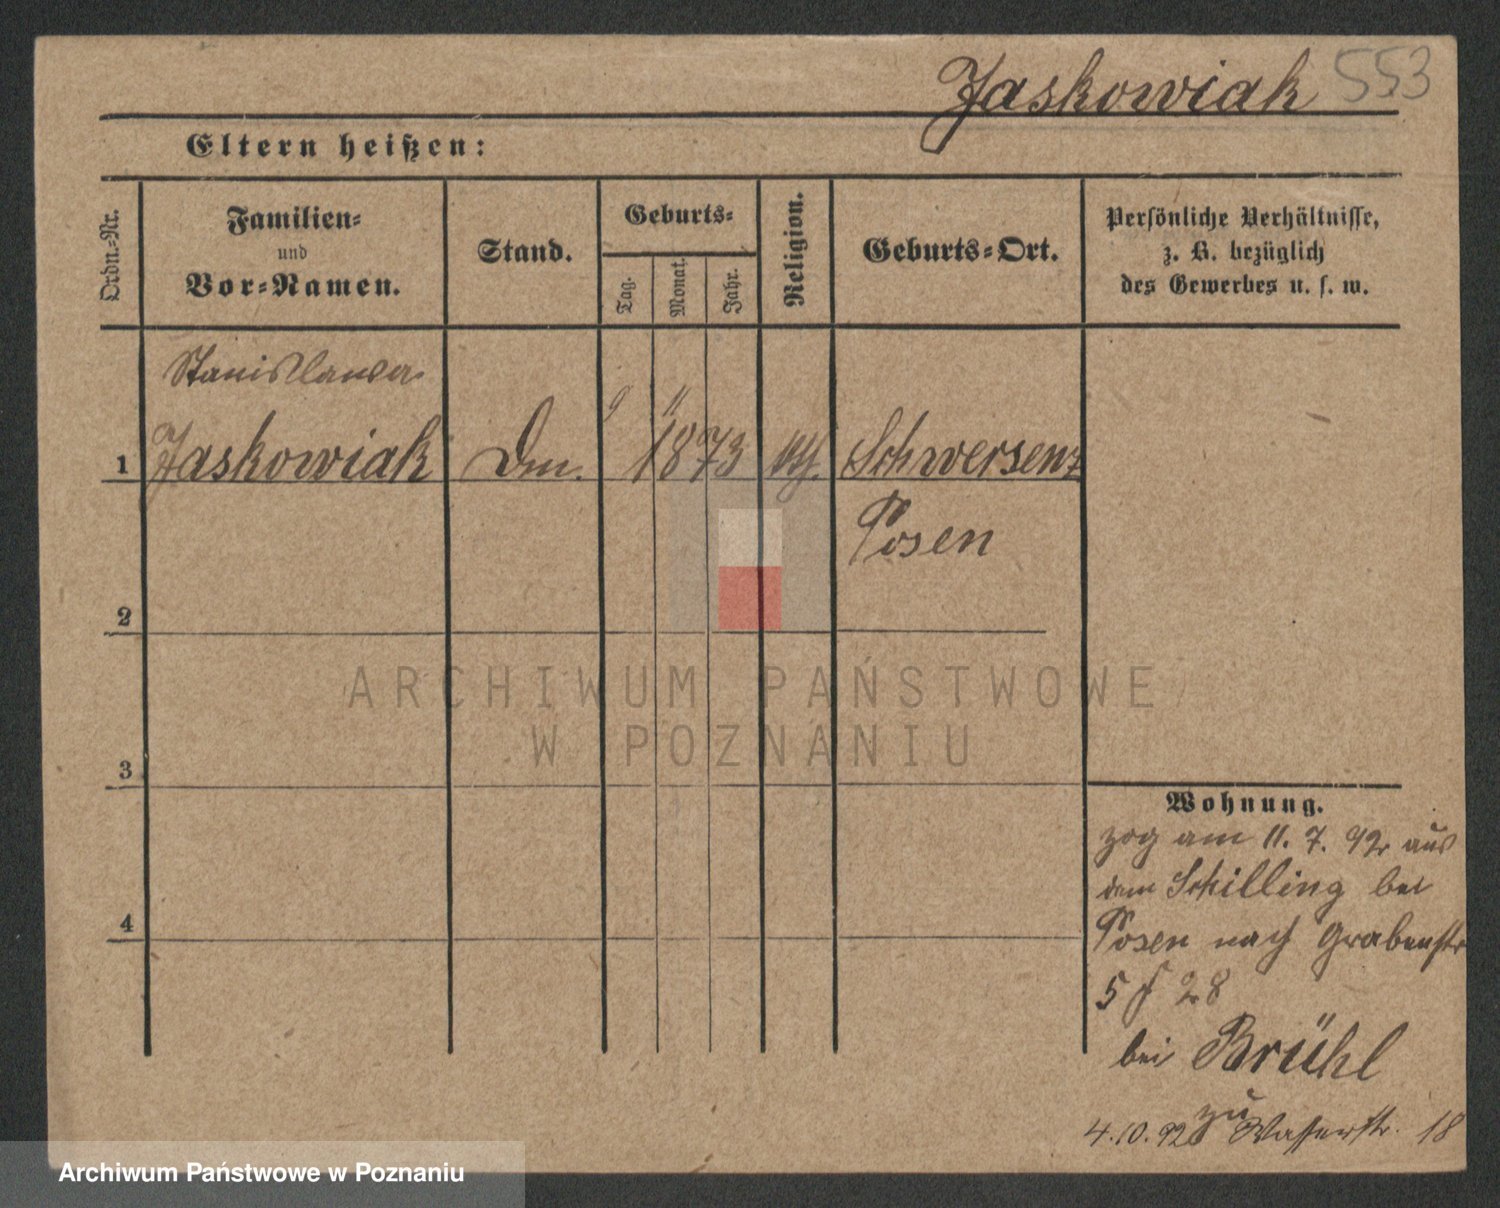 Jaskowiak 553
Eltern heißen:
Ordn.-Nr.
Familien-
und
Vor-Namen.
Stand.
Geburts-
Tag.
Monat.
Jahr.
Religion.
Geburts-Ort.
Persönliche Verhältnisse,
z. B. bezüglich
des Gewerbes u. s. w.
Stanislawa
9 11
1 Jaskowiak 1873 Schwersenz
Posen
2
3
4
Wohnung.
zog am 11. 7. 92 aus
dem Schilling bei
Posen nach Grabenstr
5 28
bei Brühl
4.10.92 zu Wasserstr. 18
ARCHIWUM PAŃSTWOWE
W POZNANIU
Archiwum Państwowe w Poznaniu